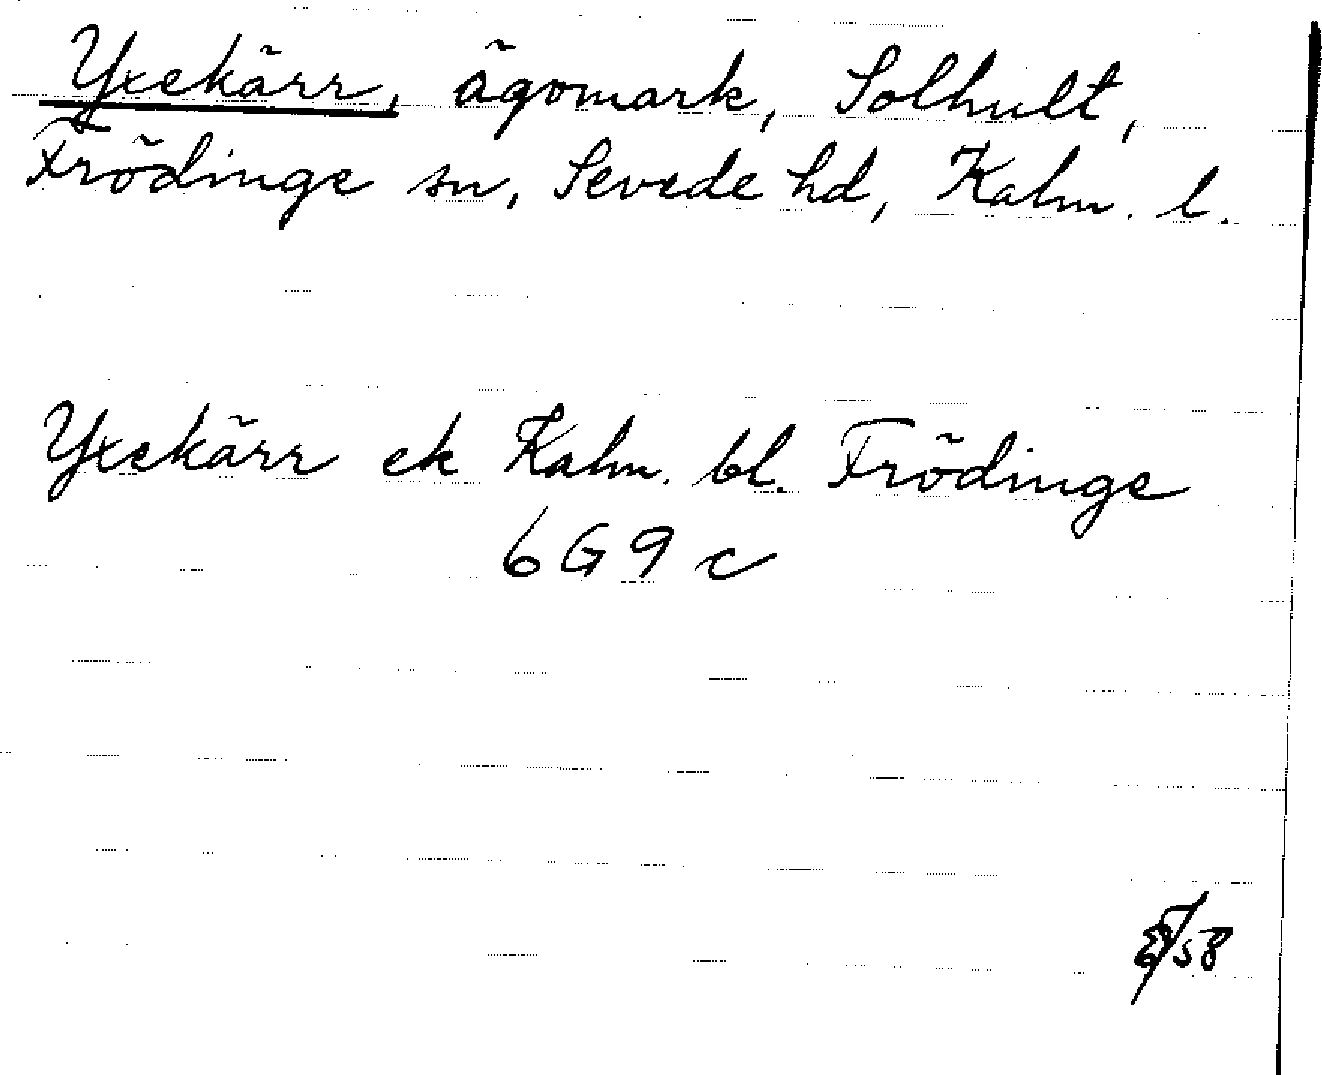 Yxekärr, ägomark, Solhult,
Frödinge sn, Sevede hd, Kalm. l.
Yxekärr ek Kalm. bl. Frödinge
6G9c
58